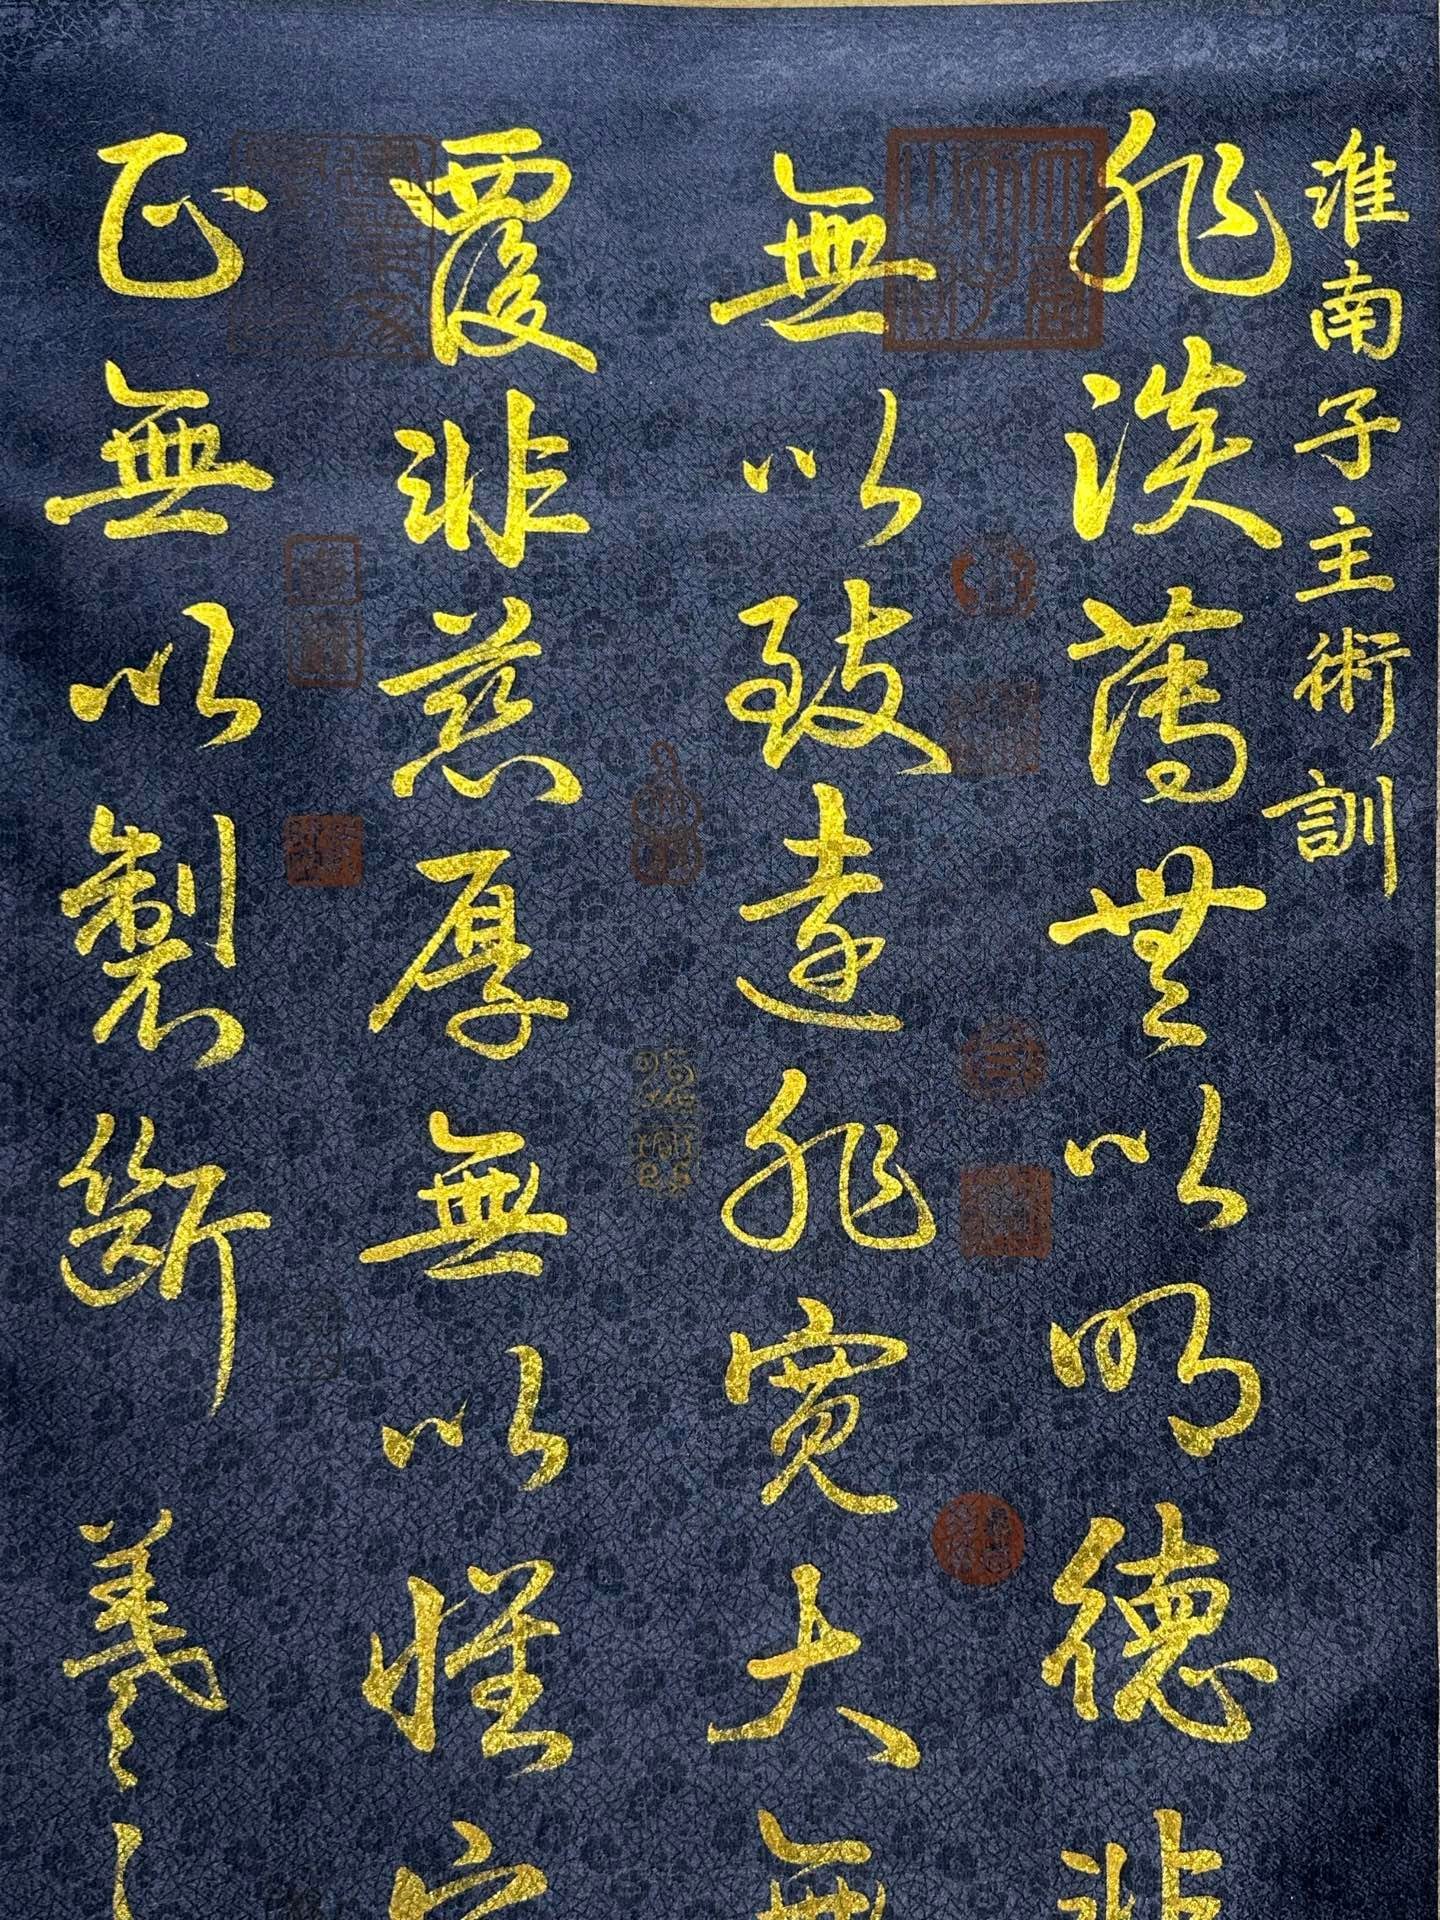 淮南子主術訓
非淡薄無以明德非
無以致遠非寬大無
覆非慈厚無以懷
正無以製斷羲之